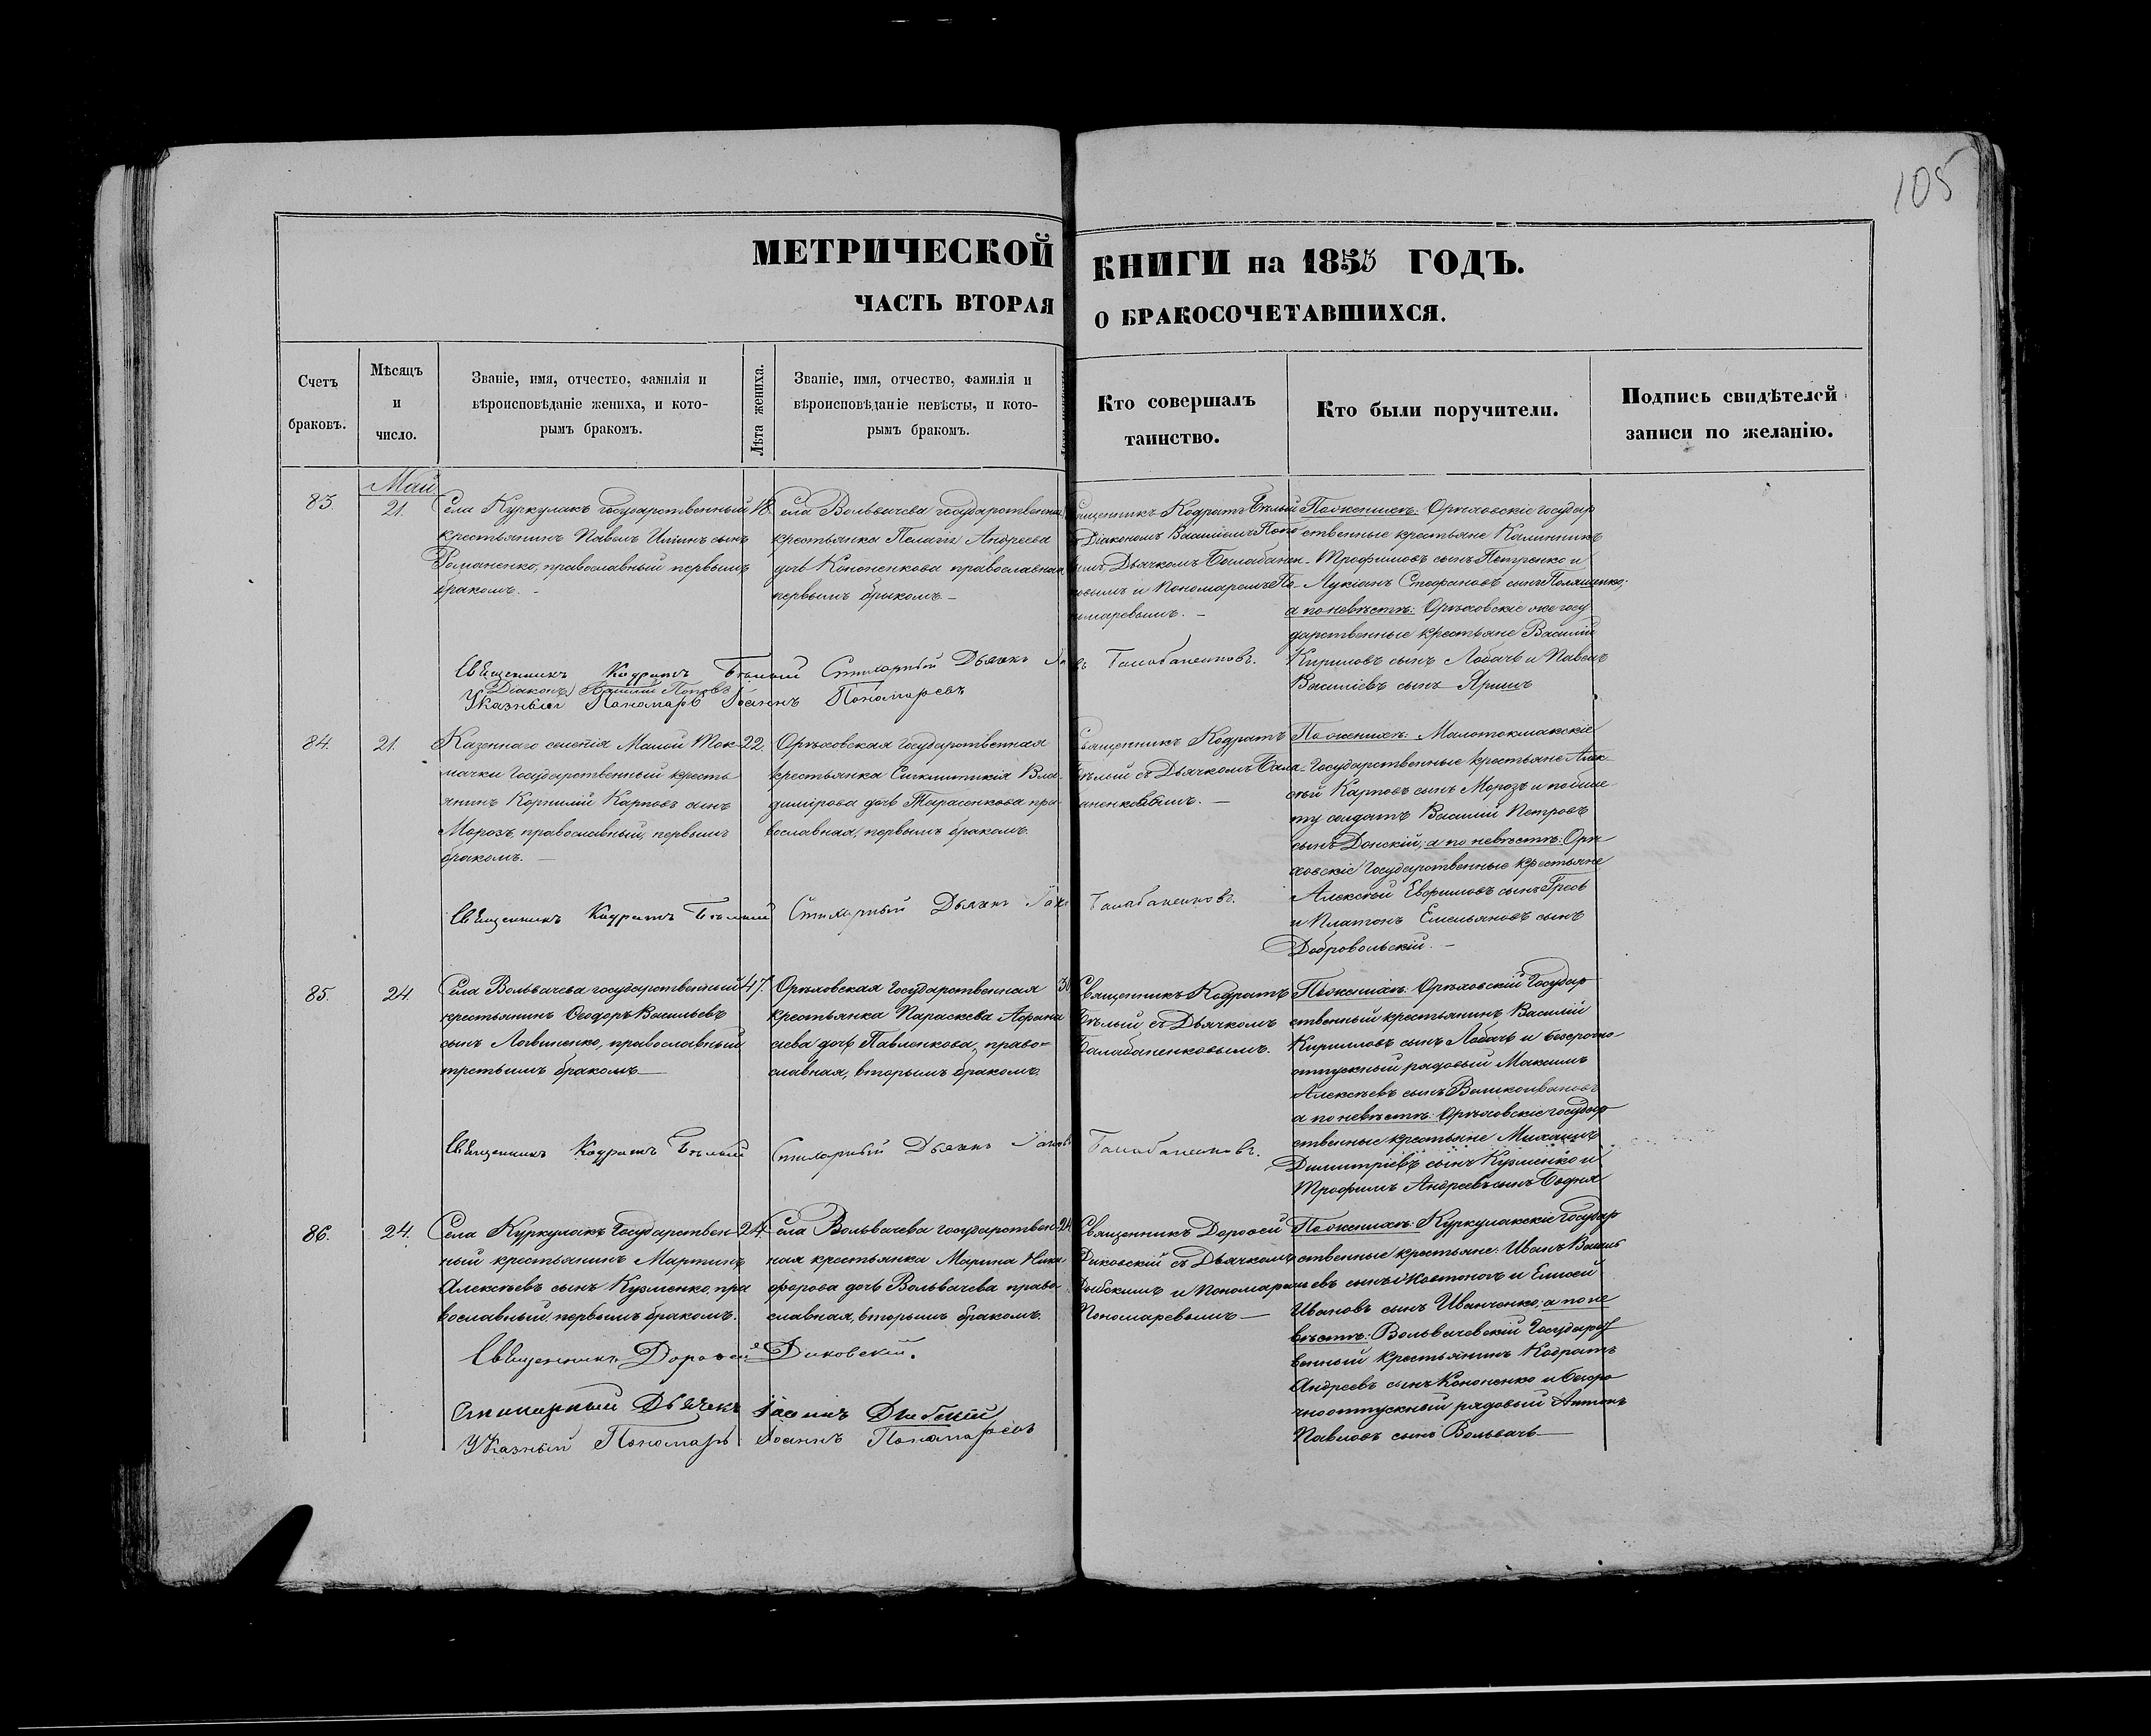 105
МЕТРИЧЕСКОЙ КНИГИ на 1855 ГОДЪ.
ЧАСТЬ ВТОРАЯ О БРАКОСОЧЕТАВШИХСЯ.
Счетъ
браковъ.
Мѣсяцъ
и
число.
Званіе, имя, отчество, фамилія и
вѣроисповѣданіе жениха, и кото-
рымъ бракомъ.
Лѣта жениха.
Званіе, имя, отчество, фамилія и
вѣроисповѣданіе невѣсты, и кото-
рымъ бракомъ.
Кто совершалъ
таинство.
Кто были поручители.
Подпись свидѣтелей
записи по желанію.
Май
83.
21.
Села Куркулакъ государственный
крестьянинъ Павелъ Ильинъ сынъ
Романенко, православный первымъ
бракомъ. -
18
Села Вольвачева государственная
крестьянка Пелагія Андреева
дочь Кононенкова православная
первымъ бракомъ -
Священникъ Кодратъ Бѣлый
Діакономъ Василіемъ Попо
вымъ, Дьячкомъ Балабанен-
ковымъ и Пономаремъ По-
номаревымъ. -
По женихѣ: Орѣховскіе государ
ственные крестьяне Калинникъ
Трофимовъ сынъ Петренко и
Лукіанъ Стефановъ сынъ Полященко;
а по невѣстѣ: Орѣховскіе же госу
дарственные крестьяне Василій
Кириловъ сынъ Лобачъ и Павелъ
Василіевъ сынъ Яришъ
Священникъ Кодратъ Бѣлый Стихарный Дьячкъ Балабаненковъ.
Діаконъ Василій Поповъ
Указный Пономарь Іоаннъ Пономаревъ
84.
21.
Казеннаго селенія Малой Ток-
мачки Государственный кресть
янинъ Корнилій Карповъ сынъ
Морозъ, православный, первымъ
бракомъ. -
22.
Орѣховская Государственная
крестьянка Синклитикія Вла-
димірова дочь Тарасенкова пра-
вославная, первымъ бракомъ.
Священникъ Кодратъ
Бѣлый съ Дьячкомъ Бала-
баненковымъ. -
По женихѣ: Малотокмакскіе
Государственные крестьяне Алек-
сѣй Карповъ сынъ Морозъ и по биле
ту солдатъ Василій Петровъ
сынъ Донскій; а по невѣстѣ: Орѣ
ховскіе Государственные крестьяне
Алексѣй Евфимовъ сынъ Гресь
и Платонъ Емельяновъ сынъ
Добровольскій. -
Священникъ Кодратъ Бѣлый Стихарный Дьячкъ Балабаненковъ.
85.
24.
Села Вольвачева государственный
крестьянинъ Ѳеодоръ Васильевъ
сынъ Логвиненко, православный
третьимъ бракомъ
47.
Орѣховская Государственная
крестьянка Параскева Аѳана
сіева дочь Павленкова, право=
славная, вторымъ бракомъ.
30
Священникъ Кодратъ
Бѣлый съ Дьячкомъ
Балабаненковымъ.
По женихѣ: Орѣховскій Государ
ственный крестьянинъ Василій
Кирилловъ сынъ Лобачъ и безсрочно-
отпускный рядовый Максимъ
Алексѣевъ сынъ Великоивановъ
а по невѣстѣ: Орѣховскіе государ
ственные крестьяне Михаилъ
Димитріевъ сынъ Кузменко и
Трофимъ Андреевъ сынъ Бодня
Священникъ Кодратъ Бѣлый Стихарный Дьячкъ Балабаненковъ.
86.
24.
Села Куркулакъ Государствен-
ный крестьянинъ Мартинъ
Алексѣевъ сынъ Кузменко, пра
вославный, первымъ бракомъ.
24.
Села Вольвачева государствен-
ная крестьянка Марина Ники
форова дочь Вольвачева право-
славная, вторымъ бракомъ.
24
Священникъ Дороѳей
Диковскій съ Дьячкомъ
и Пономаремъ
Пономаревымъ
По женихѣ: Куркулакскіе Государ
ственные крестьяне: Иванъ Василь
евъ сынъ и Елисей
Ивановъ сынъ Иванченко; а по не
вѣстѣ: Вольвачевскій Государст
венный крестьянинъ Кодратъ
Андреевъ сынъ Кононенко и безсро
чноотпускный рядовый Антонъ
Павловъ сынъ Вольвачъ
Священникъ Дороѳей Диковскій.
Стихарный Дьячекъ Іоаннъ
Указный Пономарь Іоаннъ Пономаревъ